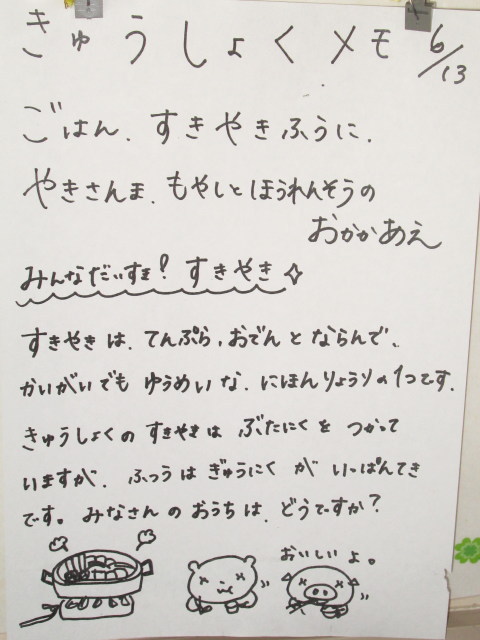 きゅうしょくメモ 6/13
ごはん、すきやきふうに、
やきさんま、もやしとほうれんそうの
おかかあえ
みんなだいすき!すきやき✧
すきやきは、てんぷら、おでんとならんで、
かいがいでもゆうめいな、にほんりょうりの1つです。
きゅうしょくのすきやきはぶたにくをつかって
いますが、ふつうはぎゅうにくがいっぱんてき
です。みなさんのおうちは、どうですか?
おいしいよ。